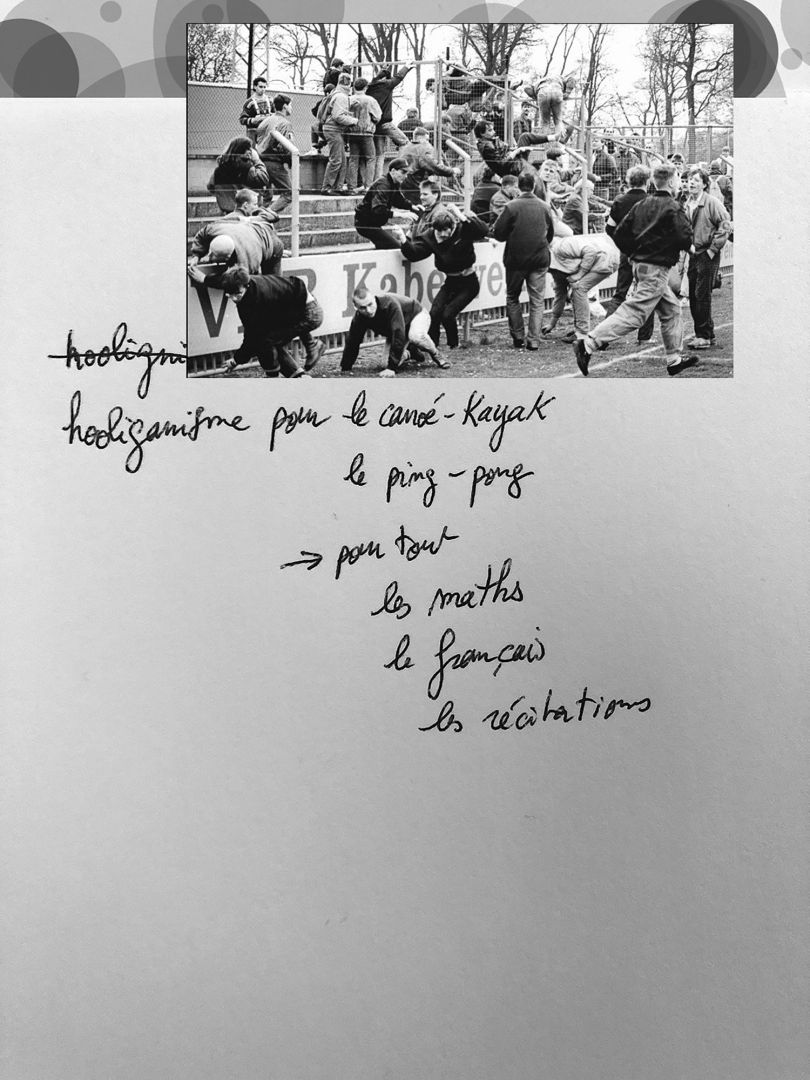 hooligni
hooliganisme pour le canoé-Kayak
le ping-pong
→ pour tout
les maths
le français
les récitations